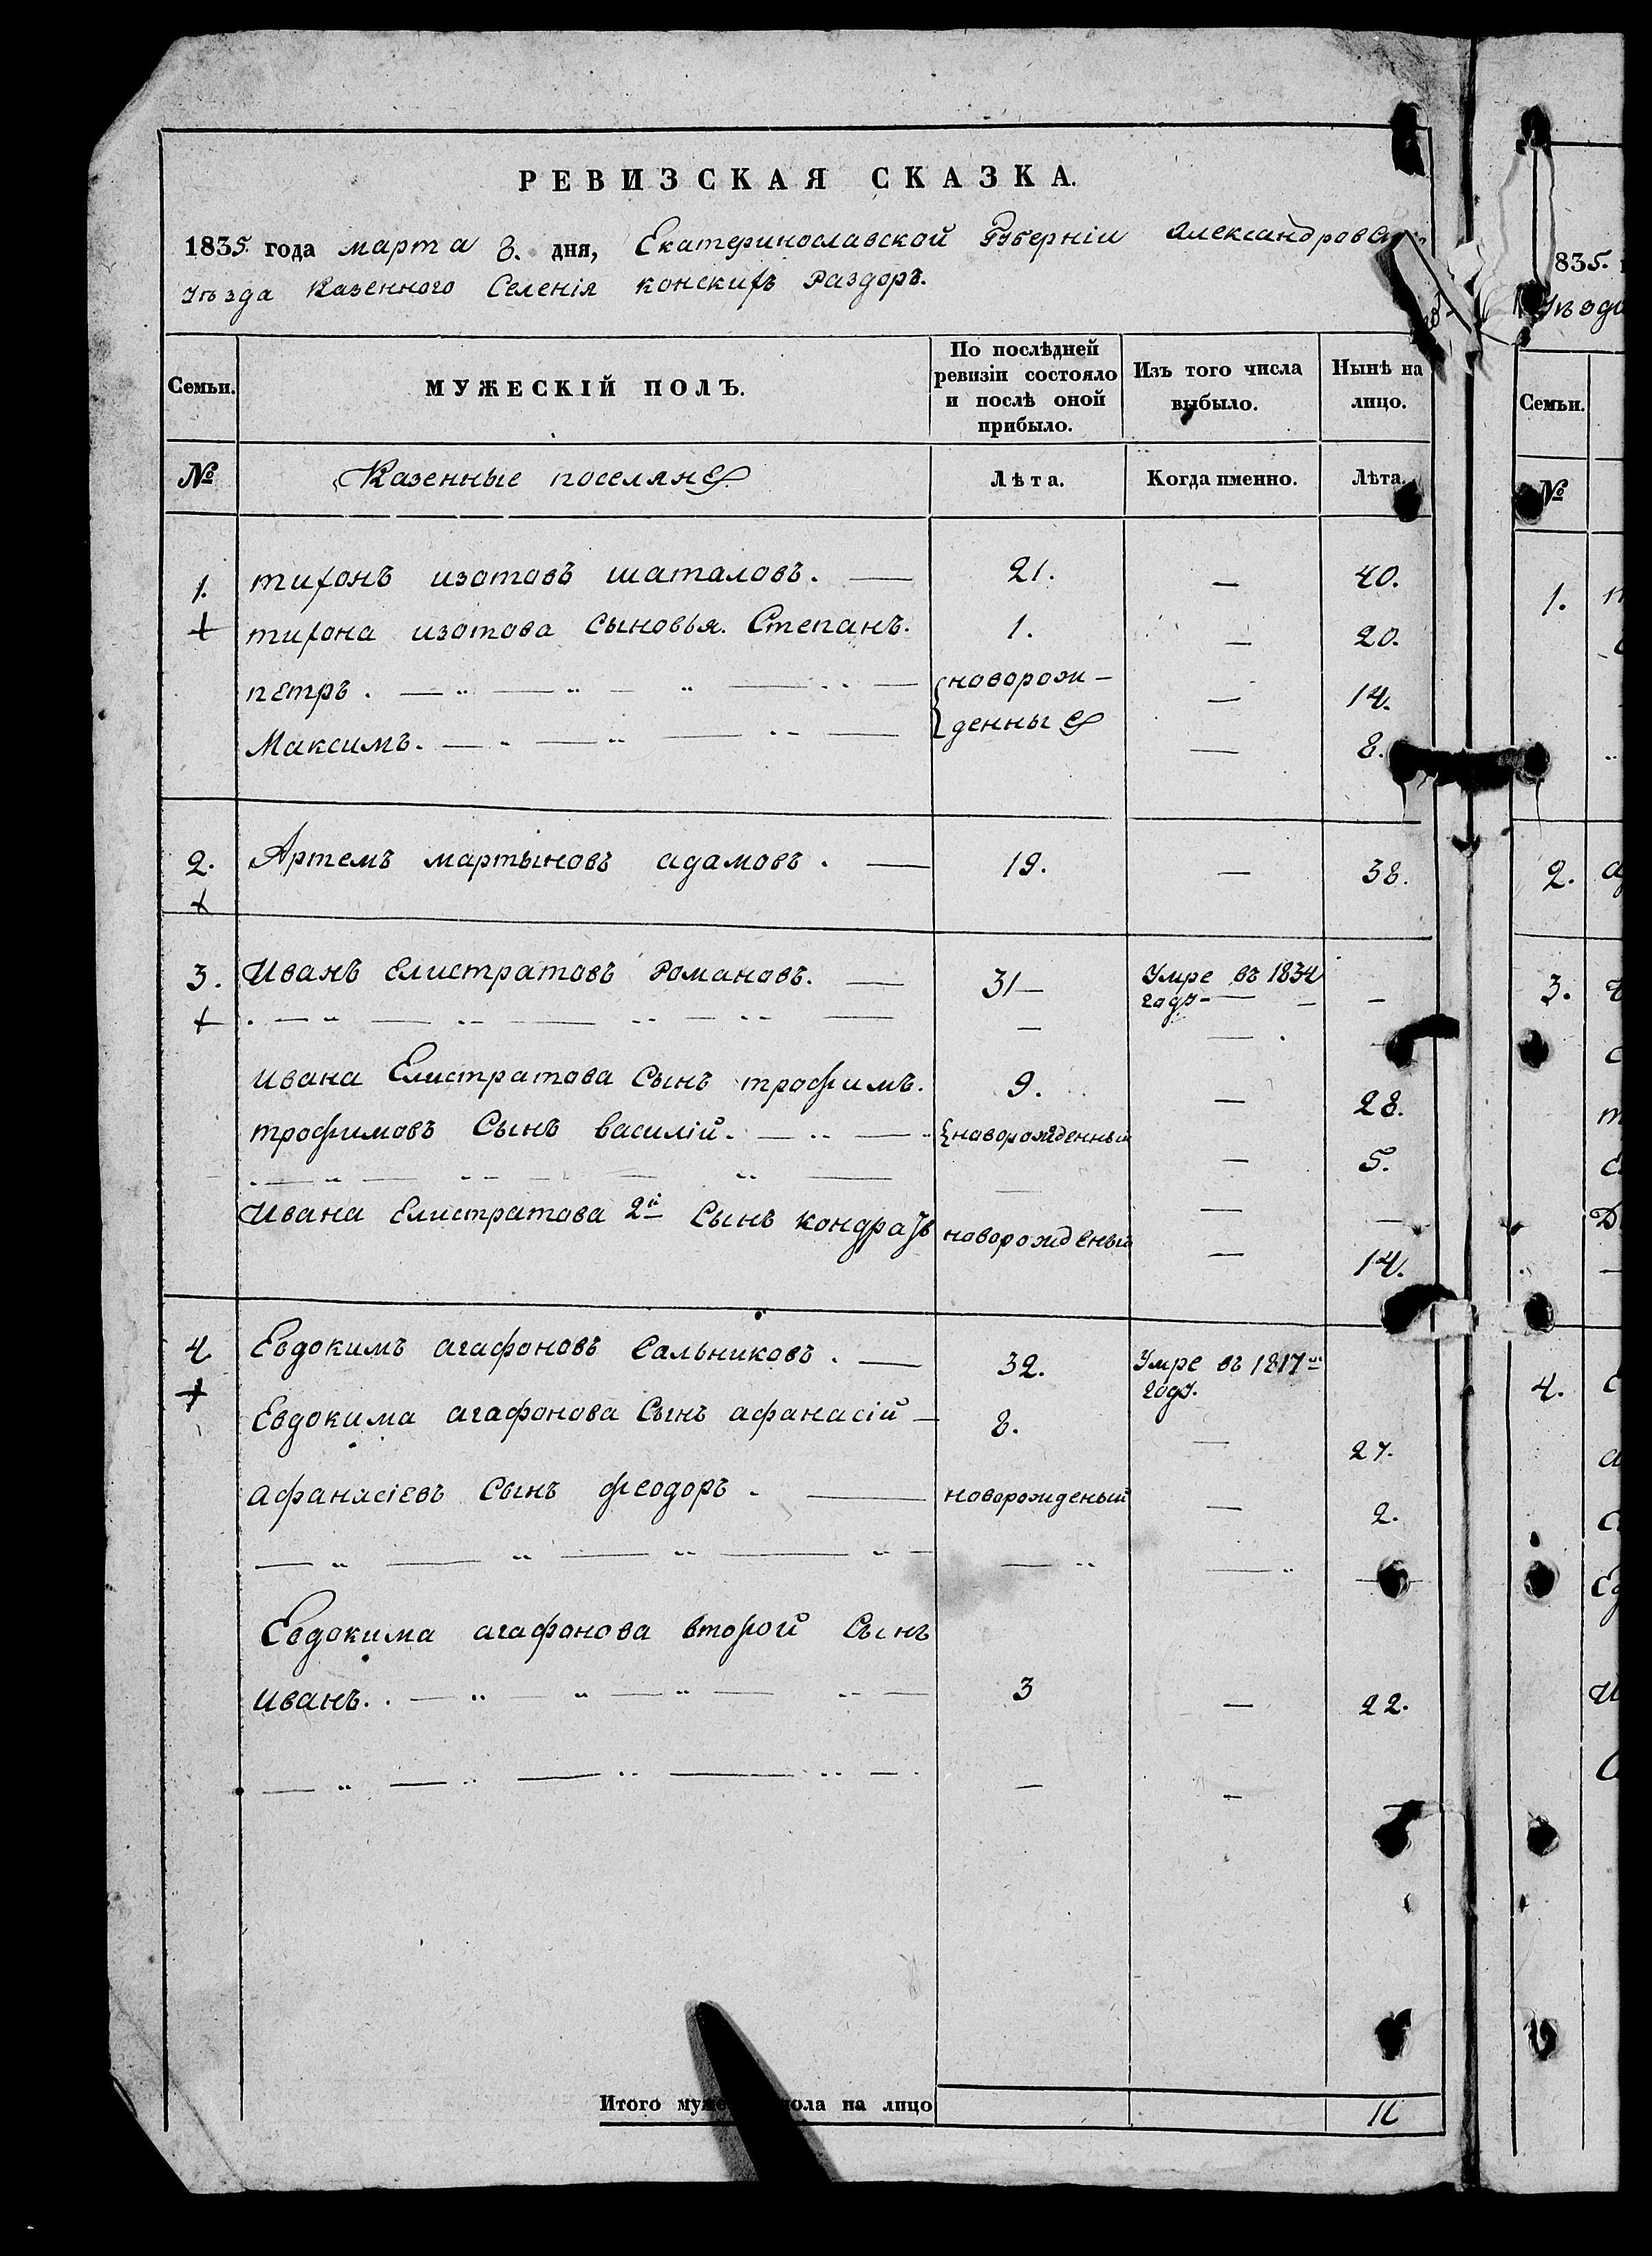 РЕВИЗСКАЯ СКАЗКА.
1835. года марта 8. дня, Екатеринославской Губерніи Александровск
уѣзда Казенного Селенія конскихъ Раздоръ.
Семьи. МУЖЕСКІЙ ПОЛЪ. По послѣдней ревизіи состояло и послѣ оной прибыло. Изъ того числа выбыло. Нынѣ на лицо.
№ Казенные поселяне Лѣта. Когда именно. Лѣта.
1. тихонъ изотовъ шаталовъ. — 21. — 40.
+ тихона изотова Сыновья. Степанъ. 1. — 20.
петръ. — новорож- — 14.
Максимъ. — денные — 8.
2. Артемъ мартыновъ адамовъ. — 19. — 38.
+
3. Иванъ Елистратовъ Романовъ. — 31 — Умре въ 1834 —
+ году —
ивана Елистратова Сынъ трофимъ. 9. — 28.
трофимовъ Сынъ василій. — новорожденный — 5.
Ивана Елистратова 2й Сынъ кондратъ новорожденый — 14.
4 Евдокимъ агафоновъ Сальниковъ. — 32. Умре въ 1817м
+ году.
Евдокима агафонова Сынъ афанасій — 8. — 27.
афанасіевъ Сынъ феодоръ. — новорожденый — 2.
Евдокима агафонова второй Сынъ
иванъ. . — 3 — 22.
Итого муже пола на лицо 11
835.
Уѣзда
Семьи.
№
1.
2.
3.
4.